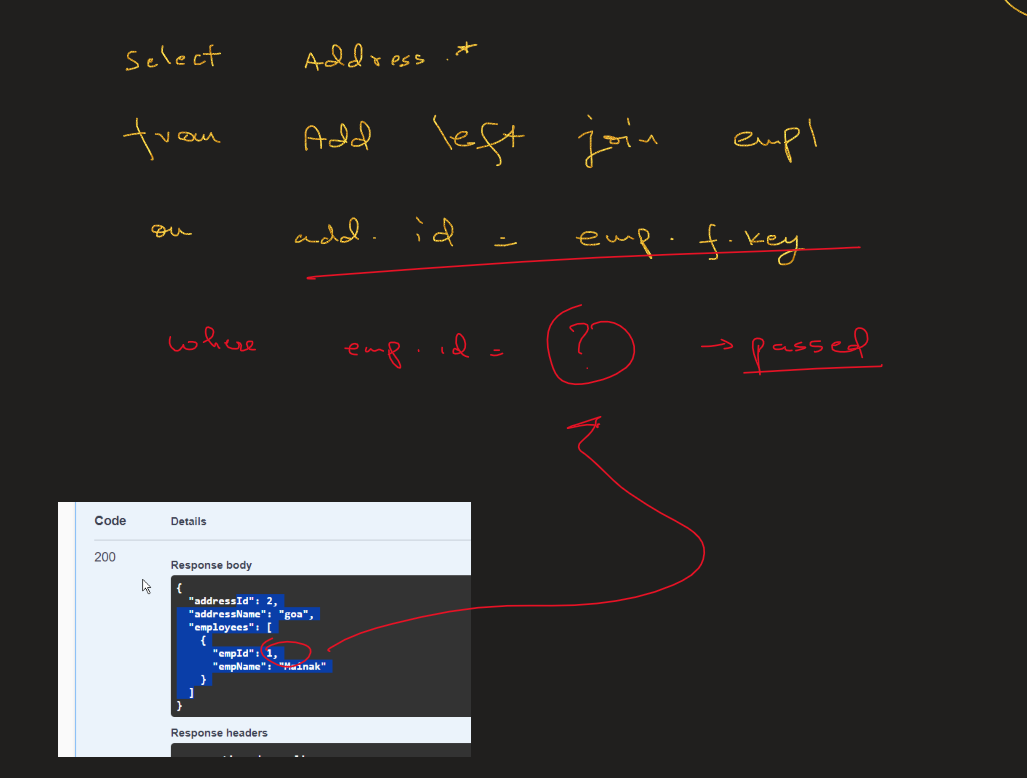 Select Address.*
from Add left join empl
on add.id = emp.f.key
where emp.id = ? → passed
Code Details
200
Response body
{
"addressId": 2,
"addressName": "goa",
"employees": [
{
"empId": 1,
"empName": "Mainak"
}
]
}
Response headers